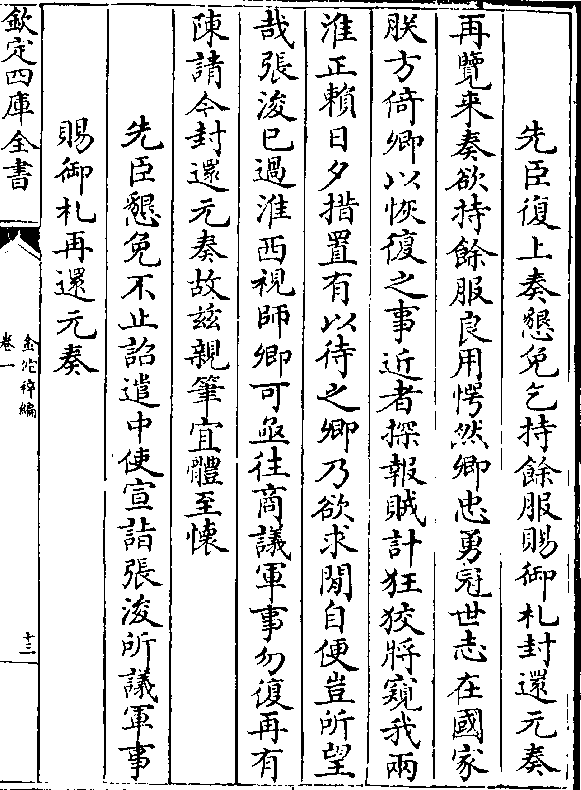 先臣復上奏懇免乞持餘服賜御札封還元奏
再覽来奏欲持餘服良用愕然卿忠勇冠世志在國家
朕方倚卿以恢復之事近者探報賊計狂狡將窺我兩
淮正賴日夕措置有以待之卿乃欲求閒自便豈所望
哉張浚已過淮西視師卿可亟往商議軍事勿復再有
陳請今封還元奏故兹親筆宜體至懐
先臣懇免不止詔遣中使宣詣張浚所議軍事
賜御札再還元奏
欽定四庫全書
金佗稡編
卷一
十三